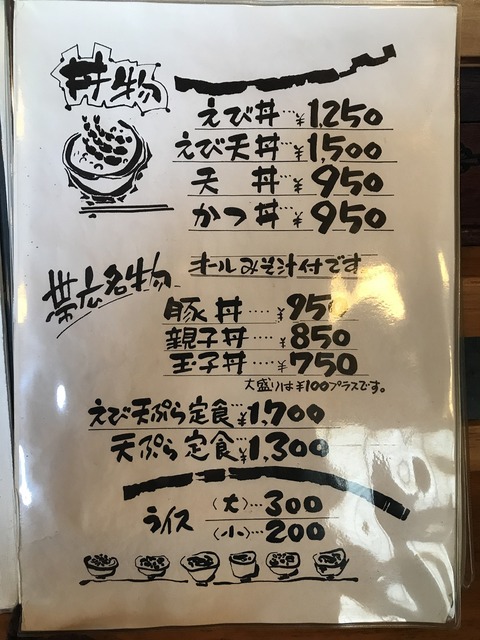 丼物
えび丼…¥1,250
えび天丼…¥1,500
天丼…¥950
かつ丼…¥950
オールみそ汁付です
帯広名物
豚丼….¥950
親子丼….¥850
玉子丼….¥750
大盛りは¥100プラスです。
えび天ぷら定食…¥1,700
天ぷら定食…¥1,300
ライス
(大)…300
(小)…200